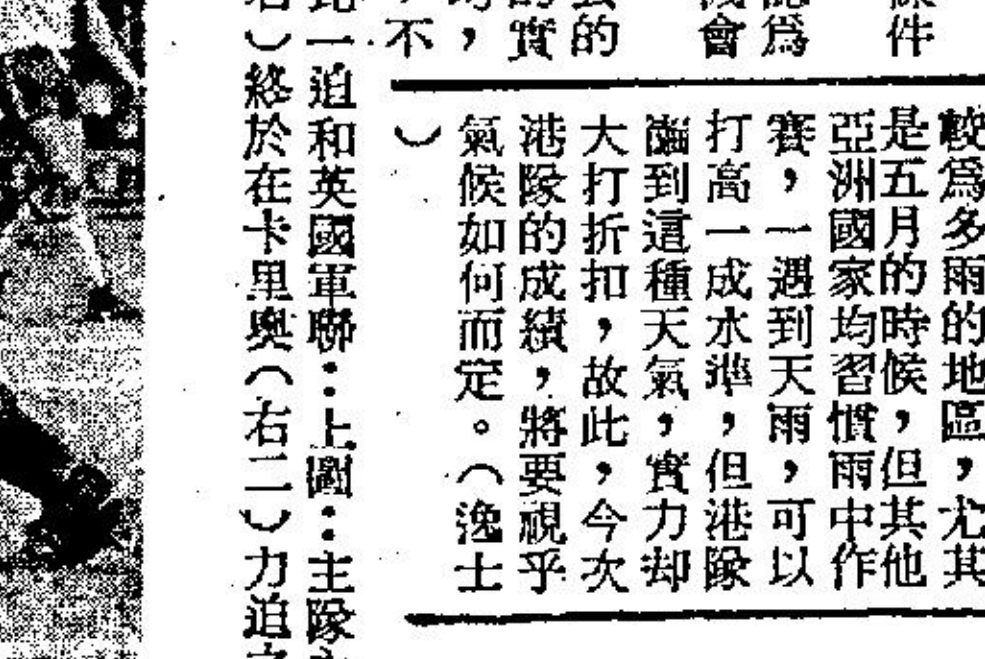 條件
認爲
會
的
的實
，
，不
較爲多雨的地區，尤其
是五月的時候，但其他
亞洲國家均習慣雨中作
賽，一遇到天雨，可以
打高一成水準，但港隊
碰到這種天氣，實力却
大打折扣，故此，今次
港隊的成績，將要視乎
氣候如何而定。（逸士
）
一迫和英國軍聯：上圖：主隊
）終於在卡里奧（右二）力迫之